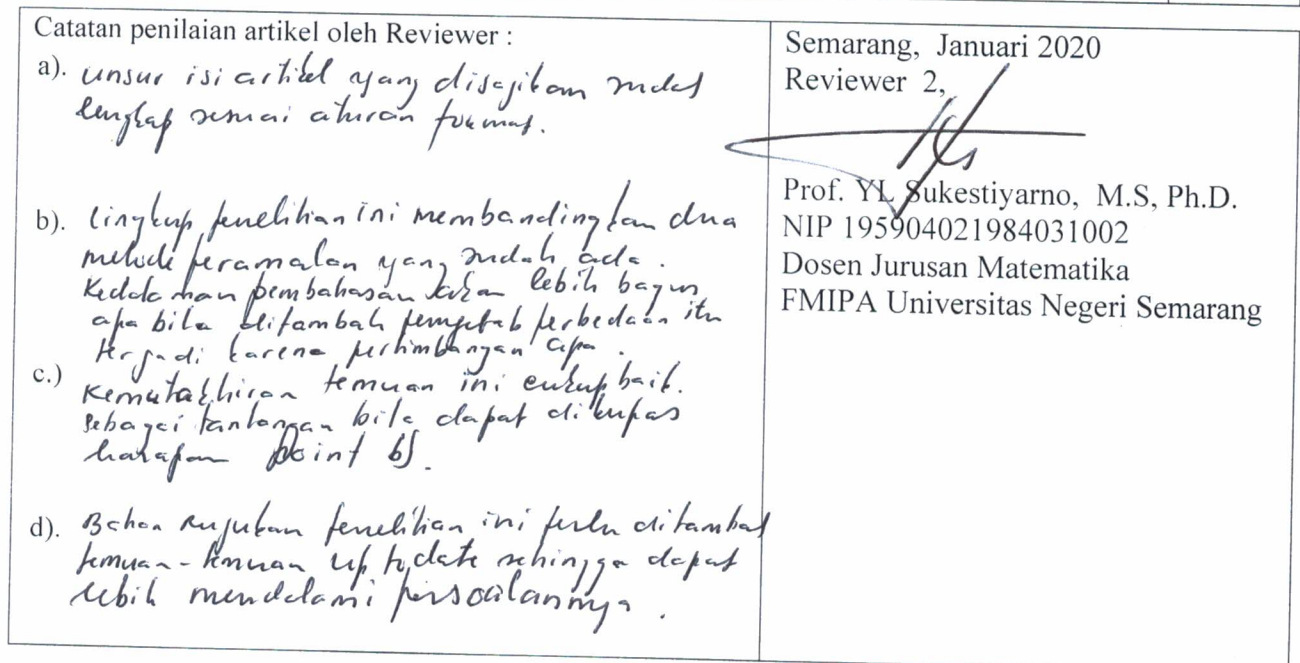 Catatan penilaian artikel oleh Reviewer :
a). unsur isi artikel yang disajikan sudah
lengkap sesuai aturan format.
b). lingkup penelitian ini membandingkan dua
metode peramalan yang sudah ada.
Kedalaman pembahasan akan lebih bagus
apa bila ditambah penyebab perbedaan itu
terjadi karena pertimbangan apa.
c.) Kemutakhiran temuan ini cukup baik.
Sebagai tantangan bila dapat dikupas
harapan point b).
d). Bahan rujukan penelitian ini perlu ditambah
temuan-temuan up to date sehingga dapat
lebih mendalami persoalannya.
Semarang, Januari 2020
Reviewer 2,
Prof. YL Sukestiyarno, M.S, Ph.D.
NIP 195904021984031002
Dosen Jurusan Matematika
FMIPA Universitas Negeri Semarang